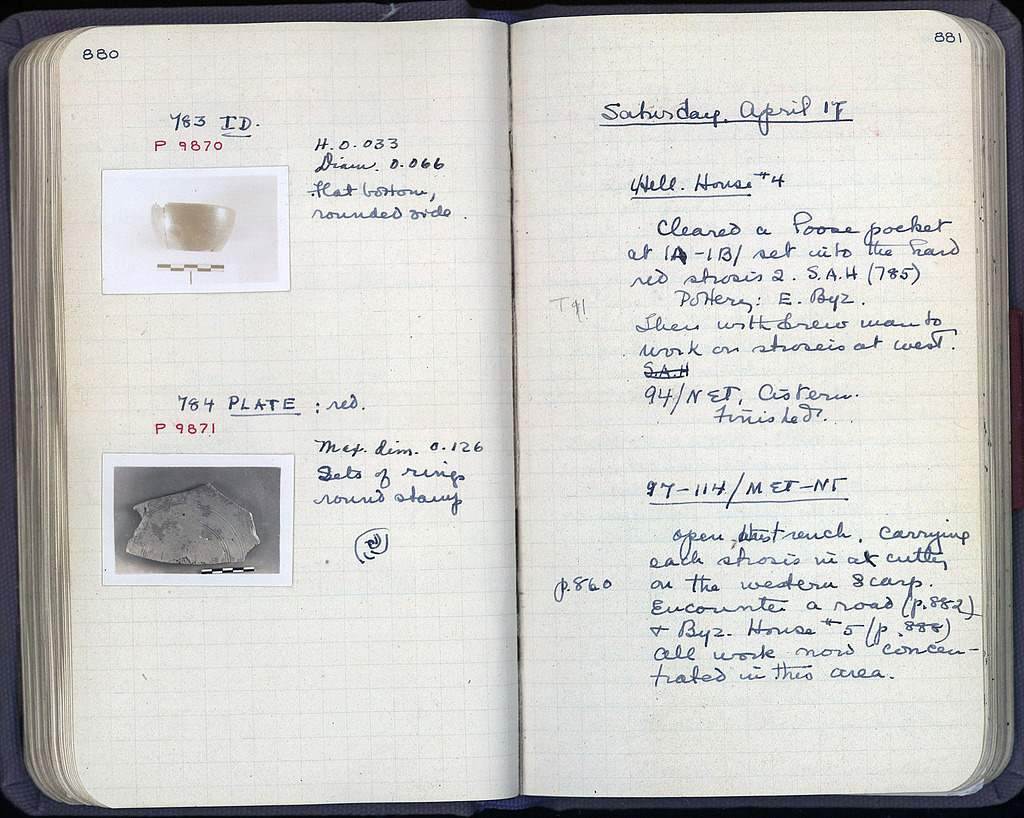 880
783 ID.
P 9870
H. 0.033
Diam. 0.066
Flat bottom,
rounded side.
784 PLATE : red.
P 9871
Max. dim. 0.126
Sets of rings
round stamp
881
Saturday, April 17
Hell. House #4
Cleared a loose pocket
at 1A-1B/ set into the hard
red strosis 2. S.A.H (785)
Pottery: E. Byz.
T91
Then withdrew man to
work on strosis at west.
S.A.H
94/NET, Cistern.
Finished.
97-114/MET-NT
Open, carrying
each strosis in at
on the western scarp.
p.860
Encounter a road (p.882)
+ Byz. House #5 (p.888)
All work now concen-
trated in this area.